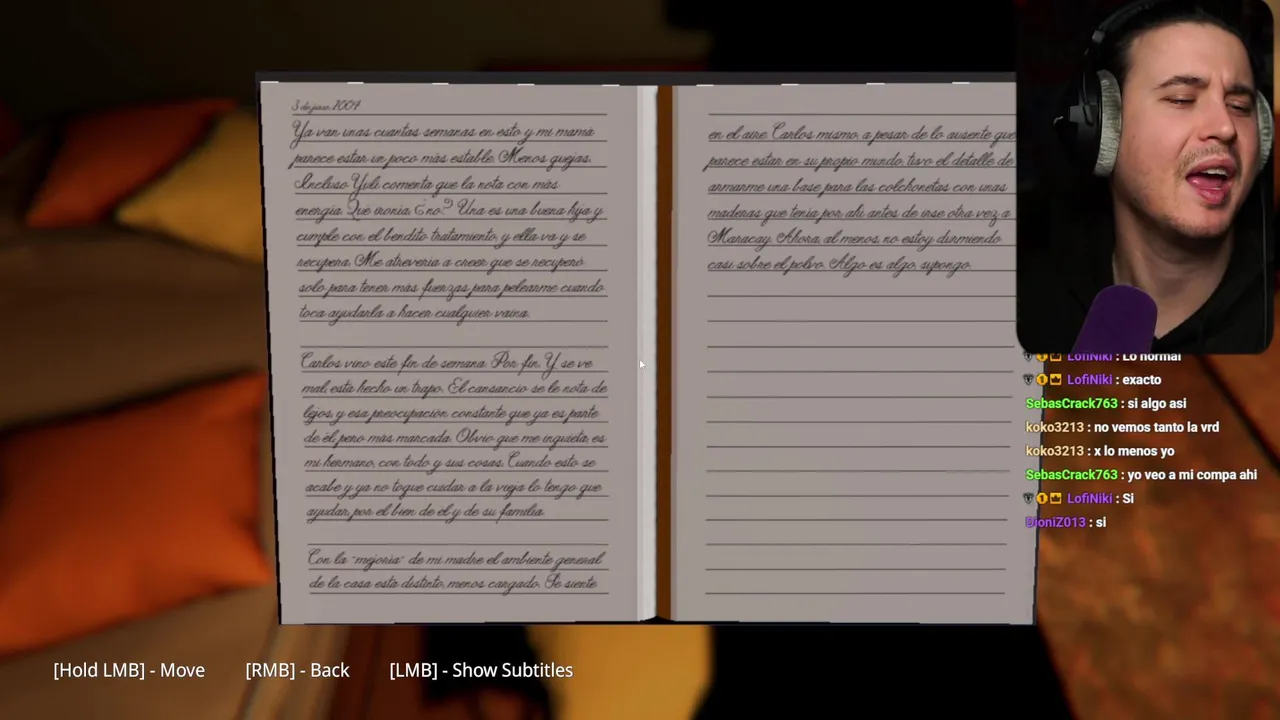 3 de junio, 2004
Ya van unas cuantas semanas en esto y mi mamá
parece estar un poco más estable. Menos quejas.
Incluso Yuli comenta que la nota con más
energía. Qué ironía ¿no? Una es una buena hija y
cumple con el bendito tratamiento, y ella va y se
recupera. Me atrevería a creer que se recuperó
solo para tener más fuerzas para pelearme cuando
toca ayudarla a hacer cualquier vaina.
Carlos vino este fin de semana. Por fin. Y se ve
mal, está hecho un trapo. El cansancio se le nota de
lejos, y esa preocupación constante que ya es parte
de él, pero más marcada. Obvio que me inquieta, es
mi hermano, con todo y sus cosas. Cuando esto se
acabe y ya no toque cuidar a la vieja lo tengo que
ayudar, por el bien de él y de su familia.
Con la "mejoría" de mi madre el ambiente general
de la casa está distinto, menos cargado. Se siente
en el aire. Carlos mismo, a pesar de lo ausente que
parece estar en su propio mundo, tuvo el detalle de
armarme una base para las colchonetas con unas
maderas que tenía por ahí antes de irse otra vez a
Maracay. Ahora, al menos, no estoy durmiendo
casi sobre el polvo. Algo es algo, supongo.
LofiNiki : Lo normal
LofiNiki : exacto
SebasCrack763 : si algo asi
koko3213 : no vemos tanto la vrd
koko3213 : x lo menos yo
SebasCrack763 : yo veo a mi compa ahi
LofiNiki : Si
DioniZ013 : si
[Hold LMB] - Move [RMB] - Back [LMB] - Show Subtitles